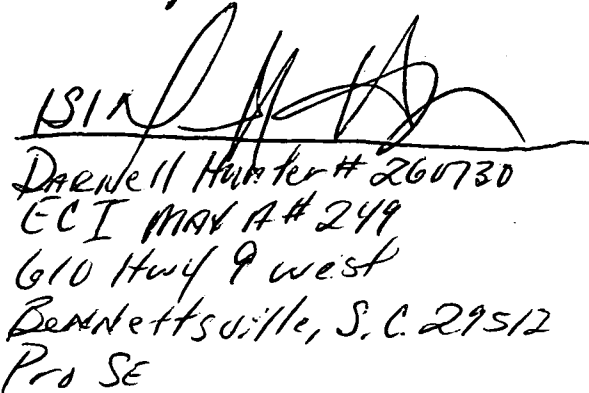 /S/
Darnell Hunter # 260730
ECI MAX A# 249
610 Hwy 9 west
Bennettsville, S.C. 29512
Pro SE